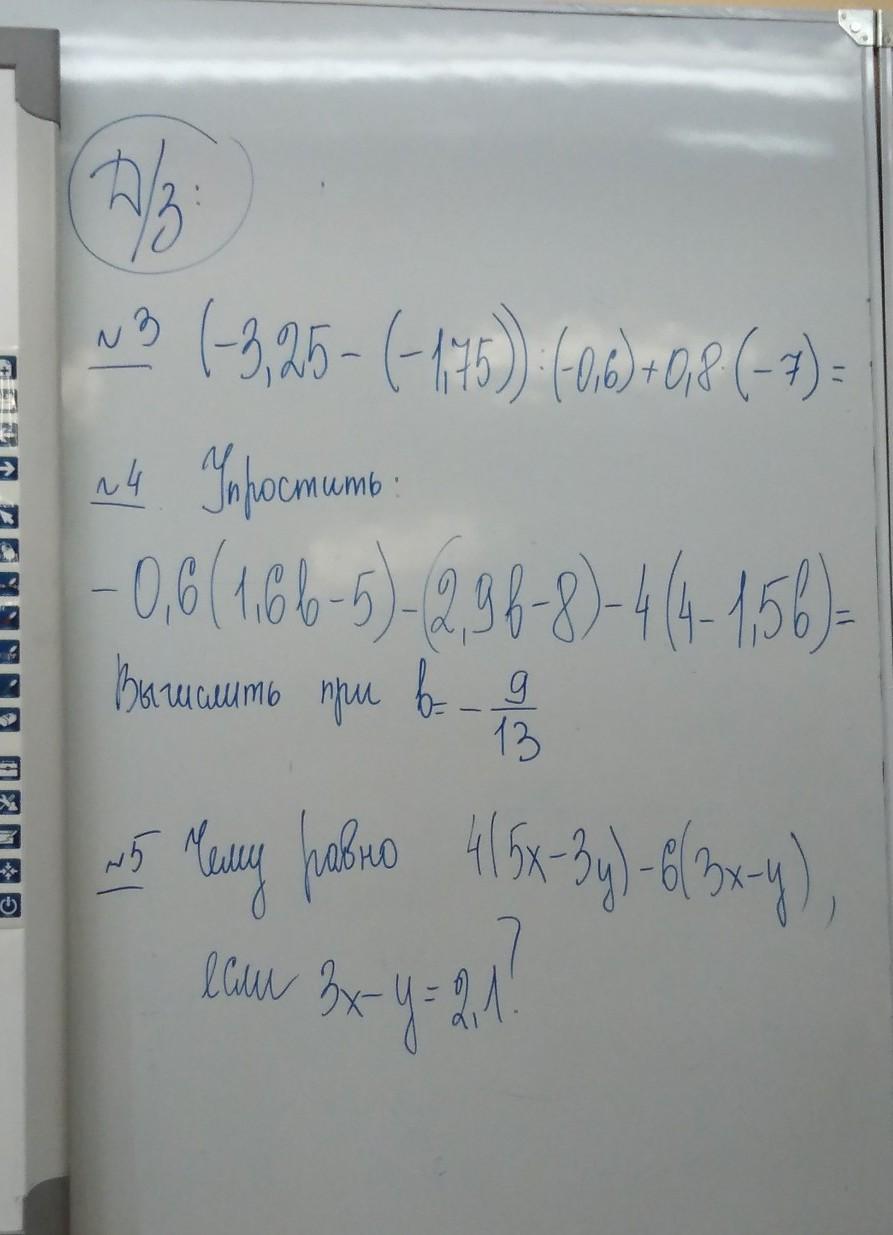 Д/З:
№3 (-3,25-(-1,75)):(-0,6)+0,8·(-7)=
№4 Упростить:
-0,6(1,6b-5)-(2,9b-8)-4(4-1,5b)=
Вычислить при b=-9/13
№5 Чему равно 4(5x-3y)-6(3x-y),
если 3x-y=2,1?